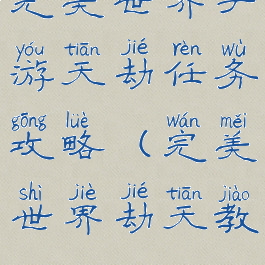 完美世界手
yóu tiān jié rèn wù
游天劫任务
gōng lüè wán měi
攻略（完美
shì jiè jié tiān jiào
世界劫天教